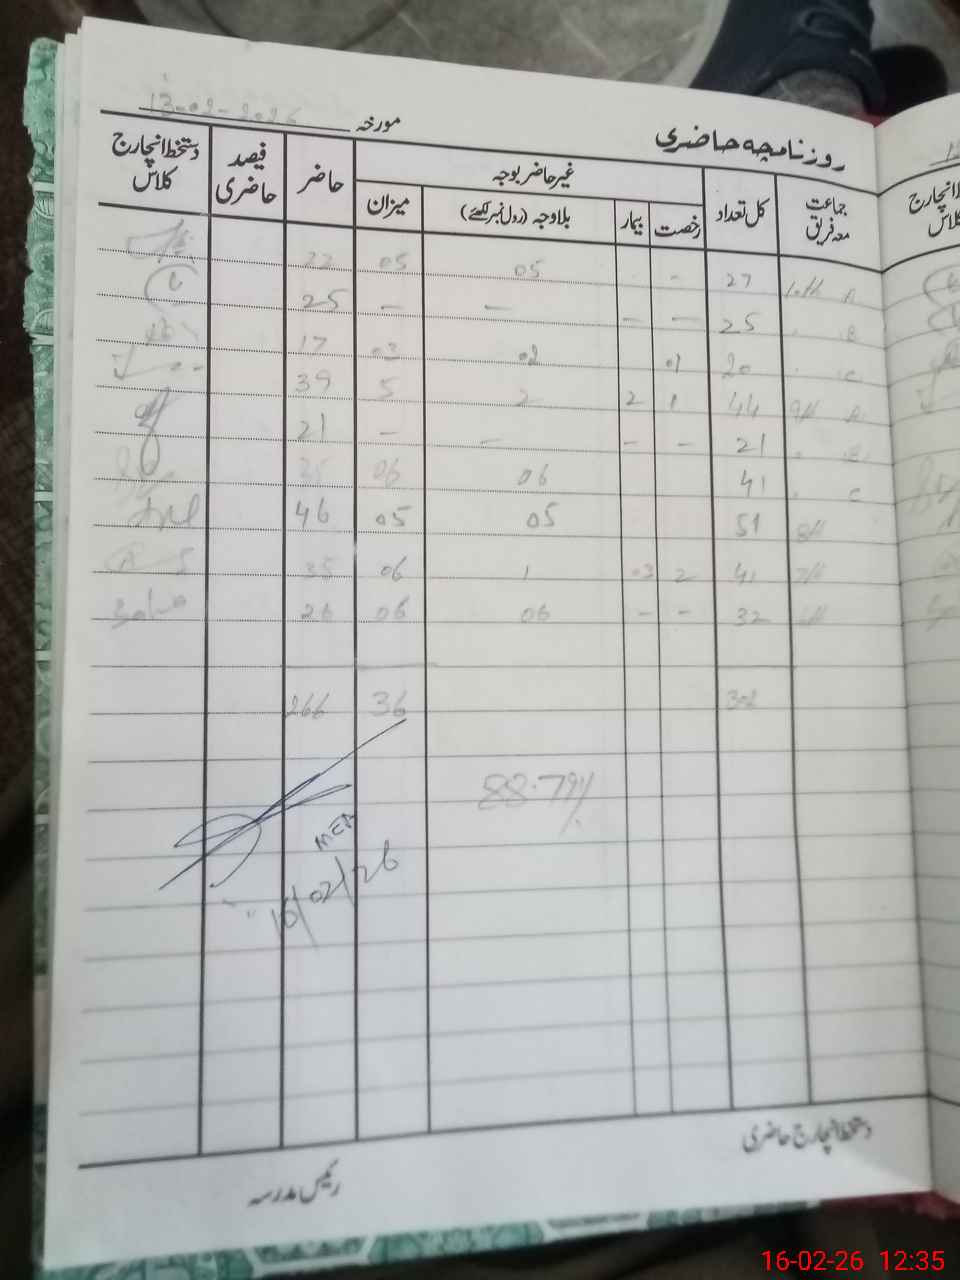 روزنامچہ حاضری
مورخہ 13-02-2026
جماعت معہ فریق کل تعداد غیر حاضر بوجہ حاضر فیصد حاضری دستخط انچارج کلاس
رخصت بیمار بلاوجہ (رول نمبر لکھئے) میزان
10th A 27 - 05 05 22
B 25 — — — — 25
C 20 01 02 03 17
9th A 44 1 2 2 5 39
B 21 - - — — 21
C 41 06 06 35
8th 51 05 05 46
7th 41 2 03 1 06 35
32 - - 06 06 26
302 36 266
88.79%
MEA
16/02/26
دستخط انچارج حاضری
رئیس مدرسہ
16-02-26 12:35